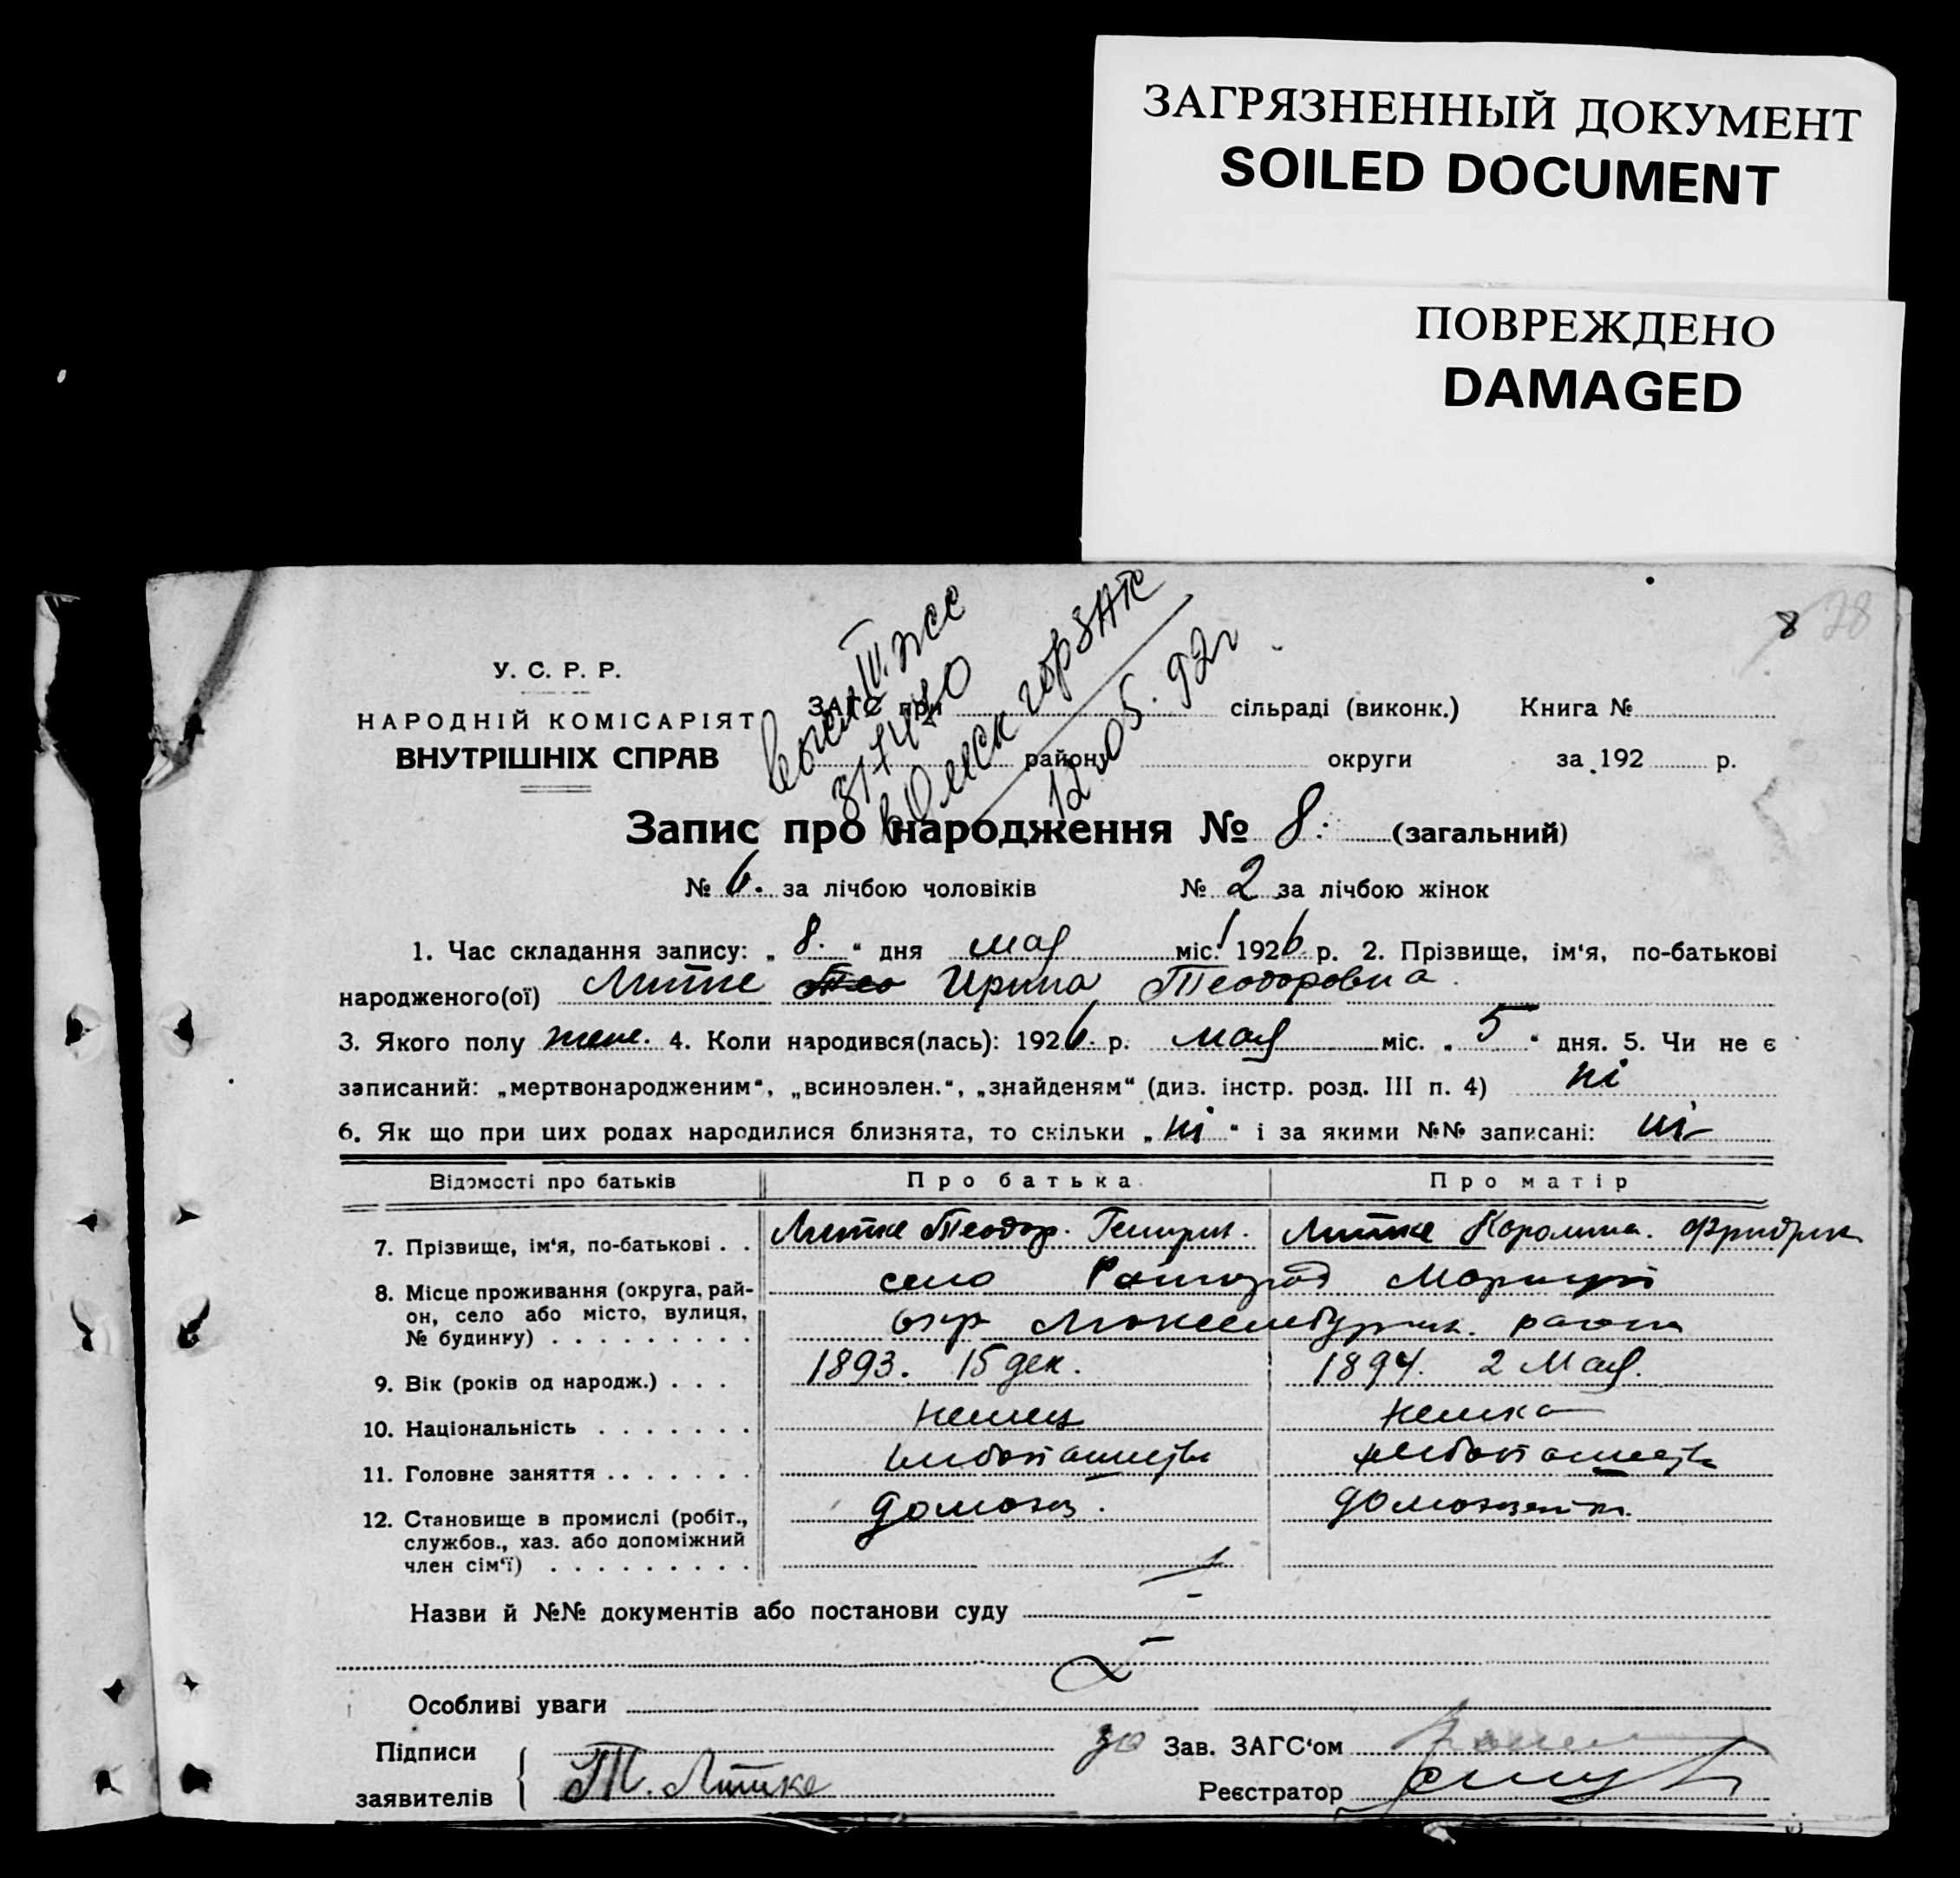 ЗАГРЯЗНЕННЫЙ ДОКУМЕНТ
SOILED DOCUMENT
ПОВРЕЖДЕНО
DAMAGED
8 28
У. С. Р. Р.
НАРОДНІЙ КОМІСАРІЯТ
ВНУТРІШНІХ СПРАВ
горЗАГС
12.05.92г
ЗАГС при сільраді (виконк.) Книга №
району округи за 192 р.
Запис про народження № 8. (загальний)
№ 6. за лічбою чоловіків № 2 за лічбою жінок
1. Час складання запису: „ 8. “ дня мая міс. 1926 р. 2. Прізвище, ім‘я, по-батькові
народженого(ої) Литке Тео Ирина Теодоровна.
3. Якого полу жен. 4. Коли народився(лась): 1926. р. мая міс. „ 5 “ дня. 5. Чи не є
записаний: „мертвонародженим“, „всиновлен.“, „знайденям“ (див. інстр. розд. III п. 4) ні
6. Як що при цих родах народилися близнята, то скільки „ ні “ і за якими №№ записані: ні
Відомості про батьків Про батька Про матір
7. Прізвище, ім‘я, по-батькові . . Литке Теодор. Генрих. Литке Каролина. Фридрих
8. Місце проживання (округа, рай-
он, село або місто, вулиця,
№ будинку) . . . . . . . . .
село Райгород Мариуп
окр Люксембургск. района
9. Вік (років од народж.) . . . 1893. 15 дек. 1894. 2 Мая.
10. Національність . . . . . . . немец немка
11. Головне заняття . . . . . . . хлебопашеств хлебопашеств
12. Становище в промислі (робіт.,
службов., хаз. або допоміжний
член сім‘ї) . . . . . . . . .
домохоз. домохозяйк.
Назви й №№ документів або постанови суду
Особливі уваги
Підписи
заявителів
Т. Литке
за Зав. ЗАГС‘ом
Реєстратор